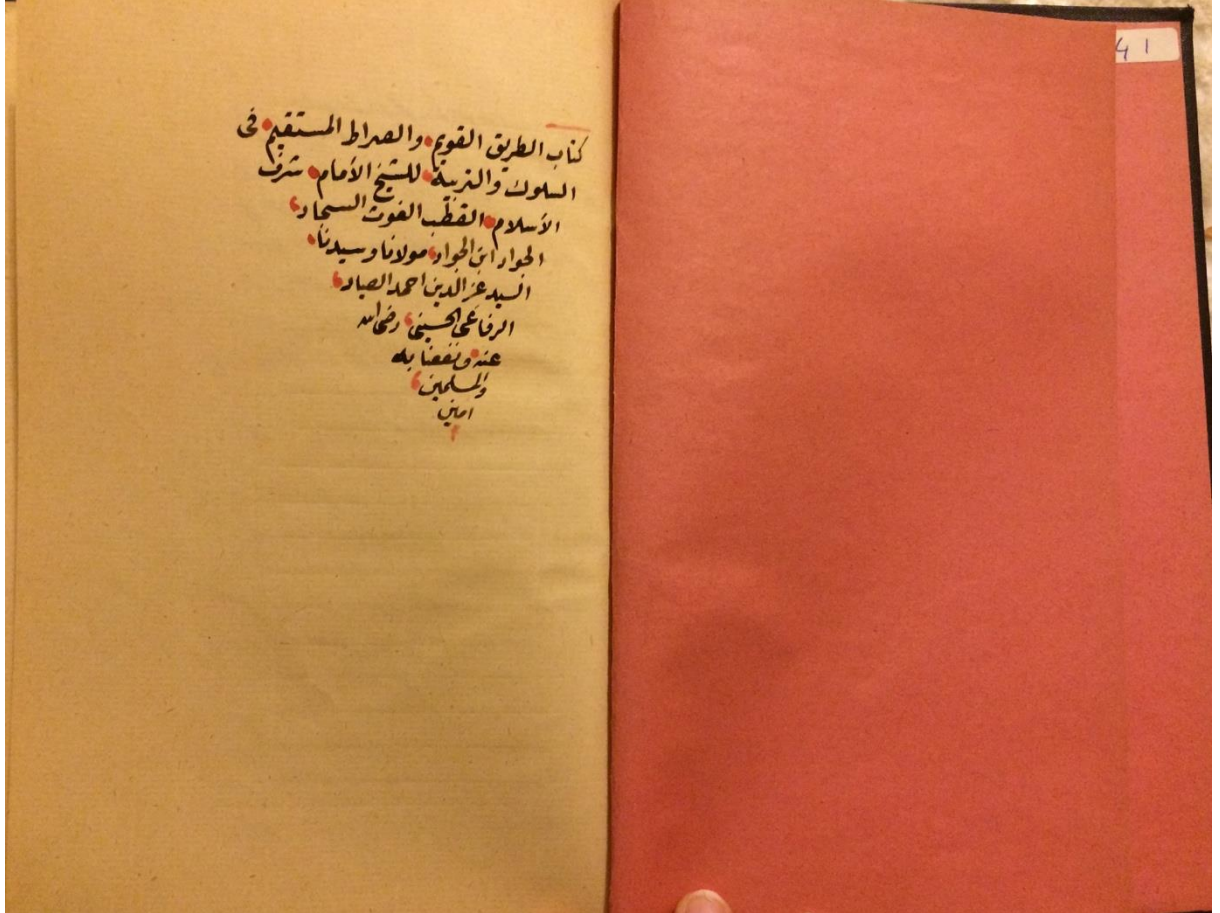 كتاب الطريق القويم والصراط المستقيم فى
السلوك والتربية للشيخ الأمام شرف
الأسلام القطب الغوث السجاد
الجواد ابن الجواد مولانا وسيدنا
السيد عز الدين احمد الصياد
الرفاعى الحسينى رضى الله
عنه ونفعنا به
والمسلمين
امين
41